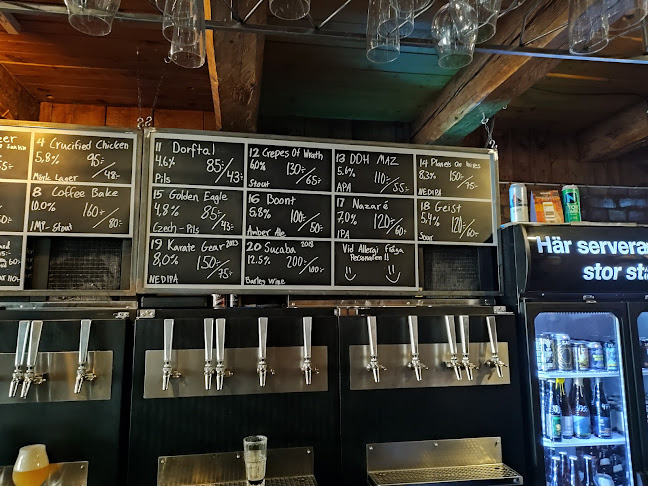 4 Crucified Chicken
5,8% 95:-/48:-
Mörk Lager
8 Coffee Bake
10.0% 160:-/80:-
IMP-Stout
11 Dorftal
4.6% 85:-/43:-
Pils
12 Crepes Of Wrath
6.0% 130:-/65:-
Stout
13 DDH MAZ
5.6% 110:-/55:-
APA
14 Planets
8.3% 150:-/75:-
NEDIPA
15 Golden Eagle
4,8% 85:-/43:-
Czech-Pils
16 Boont
5,8% 100:-/50:-
Amber Ale
17 Nazaré
7,0% 120:-/60:-
IPA
18 Geist
5,4% 120:-/60:-
Sour
19 Karate Gear
8,0% 150:-/75:-
NEDIPA
20 Sucaba
12.5% 200:-/100:-
Barley Wine
Vid Allergi Fråga
Personalen!!
Här servera
stor st